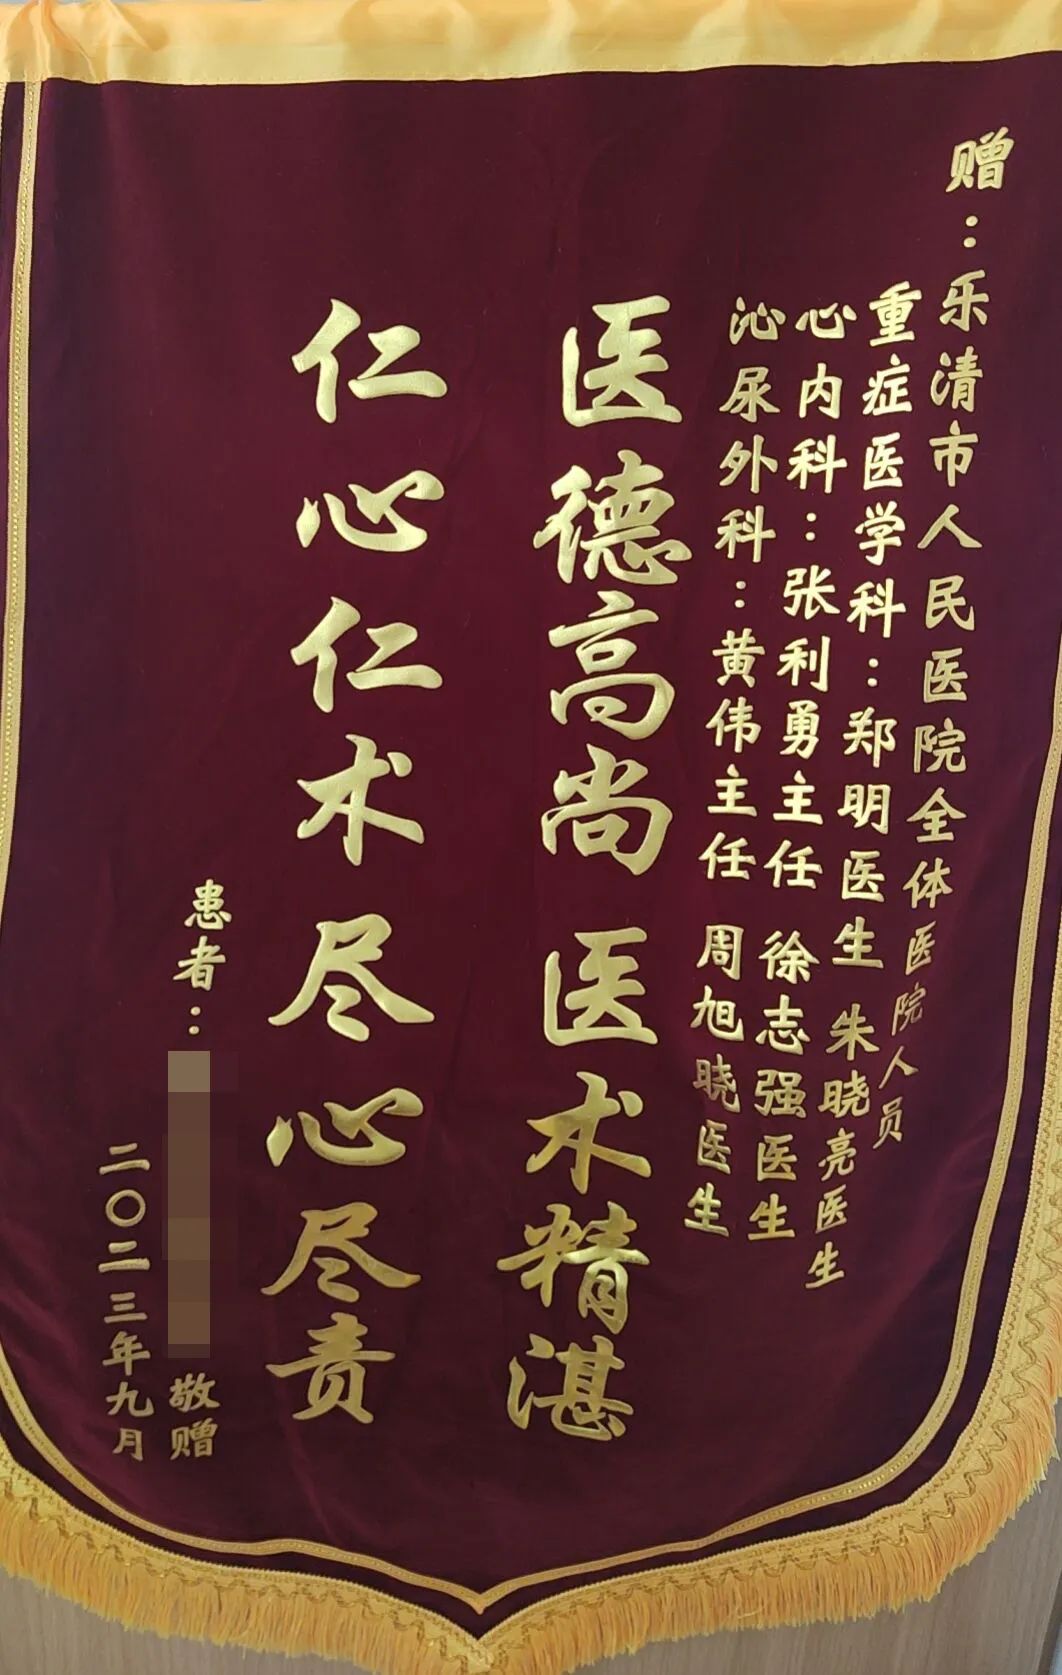 赠：乐清市人民医院全体医院人员
重症医学科：郑明医生 朱晓亮医生
心内科：张利勇主任 徐志强医生
沁尿外科：黄伟主任 周旭晓医生
医德高尚 医术精湛
仁心仁术 尽心尽责
患者：
敬赠
二〇二三年九月